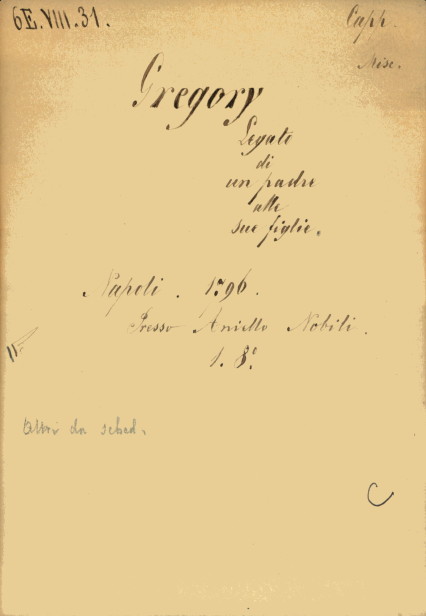 6E.VIII.31.
Capp.
Misc.
Gregory
Legato
di
un padre
alle
sue figlie.
Napoli. 1796.
Presso Aniello Nobili.
1. 8°
Altri da sched.
C